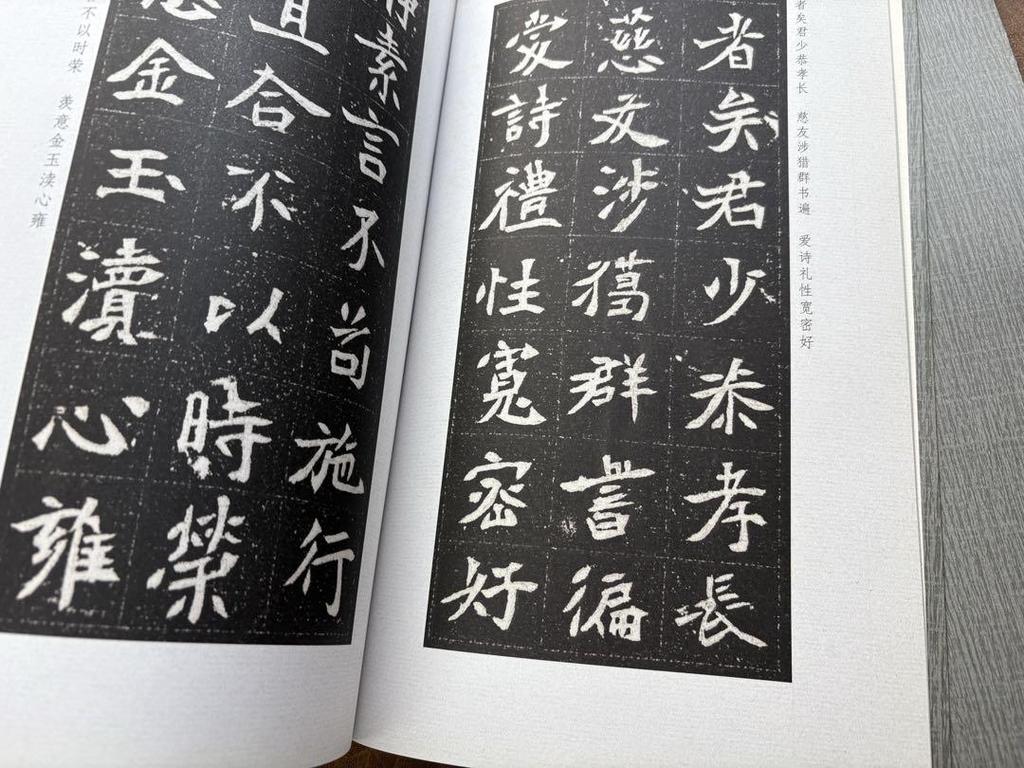 者矣君少恭孝长 慈友涉猎群书遍 爱诗礼性宽密好
者矣君少恭孝長
慈友涉獦群書徧
愛詩禮性寬密好
素言不苟施行
合不以時榮
意金玉瀆心雍
不以时荣 羡意金玉渎心雍